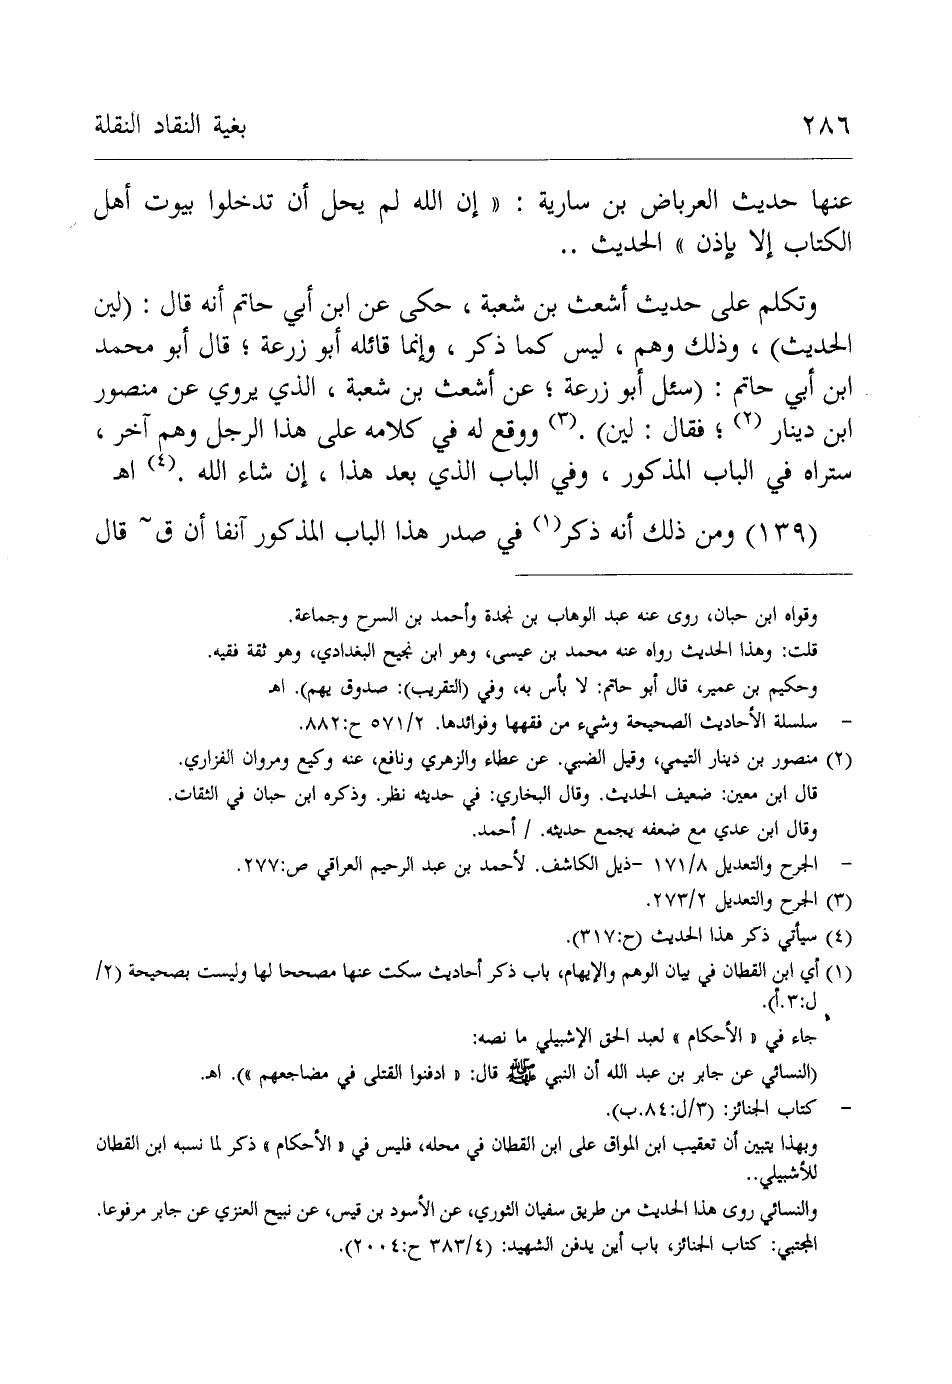 ٢٨٦
بغية النقاد النقلة
عنها حديث العرباض بن سارية : « إن الله لم يحل أن تدخلوا بيوت أهل
الكتاب إلا بإذن » الحديث ..
وتكلم على حديث أشعث بن شعبة ، حكى عن ابن أبي حاتم أنه قال : (لين
الحديث) ، وذلك وهم ، ليس كما ذكر ، وإنما قائله أبو زرعة ؛ قال أبو محمد
ابن أبي حاتم : (سئل أبو زرعة ؛ عن أشعث بن شعبة ، الذي يروي عن منصور
ابن دينار (٢) ؛ فقال : لين) .(٣) ووقع له في كلامه على هذا الرجل وهم آخر ،
ستراه في الباب المذكور ، وفي الباب الذي بعد هذا ، إن شاء الله .(٤) اهـ
(١٣٩) ومن ذلك أنه ذكر(١) في صدر هذا الباب المذكور آنفا أن ق~ قال
وقواه ابن حبان، روى عنه عبد الوهاب بن نجدة وأحمد بن السرح وجماعة.
قلت: وهذا الحديث رواه عنه محمد بن عيسى، وهو ابن نجيح البغدادي، وهو ثقة فقيه.
وحكيم بن عمير، قال أبو حاتم: لا بأس به، وفي (التقريب): صدوق يهم). اهـ
- سلسلة الأحاديث الصحيحة وشيء من فقهها وفوائدها. ٥٧١/٢ ح:٨٨٢.
(٢) منصور بن دينار التيمي، وقيل الضبي. عن عطاء والزهري ونافع، عنه وكيع ومروان الفزاري.
قال ابن معين: ضعيف الحديث. وقال البخاري: في حديثه نظر. وذكره ابن حبان في الثقات.
وقال ابن عدي مع ضعفه يجمع حديثه. / أحمد.
- الجرح والتعديل ١٧١/٨ -ذيل الكاشف. لأحمد بن عبد الرحيم العراقي ص:٢٧٧.
(٣) الجرح والتعديل ٢٧٣/٢.
(٤) سيأتي ذكر هذا الحديث (ح:٣١٧).
(١) أي ابن القطان في بيان الوهم والإيهام، باب ذكر أحاديث سكت عنها مصححا لها وليست بصحيحة (٢/
ل:٣.أ).
جاء في « الأحكام » لعبد الحق الإشبيلي ما نصه:
(النسائي عن جابر بن عبد الله أن النبي ﷺ قال: « ادفنوا القتلى في مضاجعهم »). اهـ.
- كتاب الجنائز: (٣/ل:٨٤.ب).
وبهذا يتبين أن تعقيب ابن المواق على ابن القطان في محله، فليس في « الأحكام » ذكر لما نسبه ابن القطان
للأشبيلي..
والنسائي روى هذا الحديث من طريق سفيان الثوري، عن الأسود بن قيس، عن نبيح العنزي عن جابر مرفوعا.
المجتبي: كتاب الجنائز، باب أين يدفن الشهيد: (٣٨٣/٤ ح:٢٠٠٤).